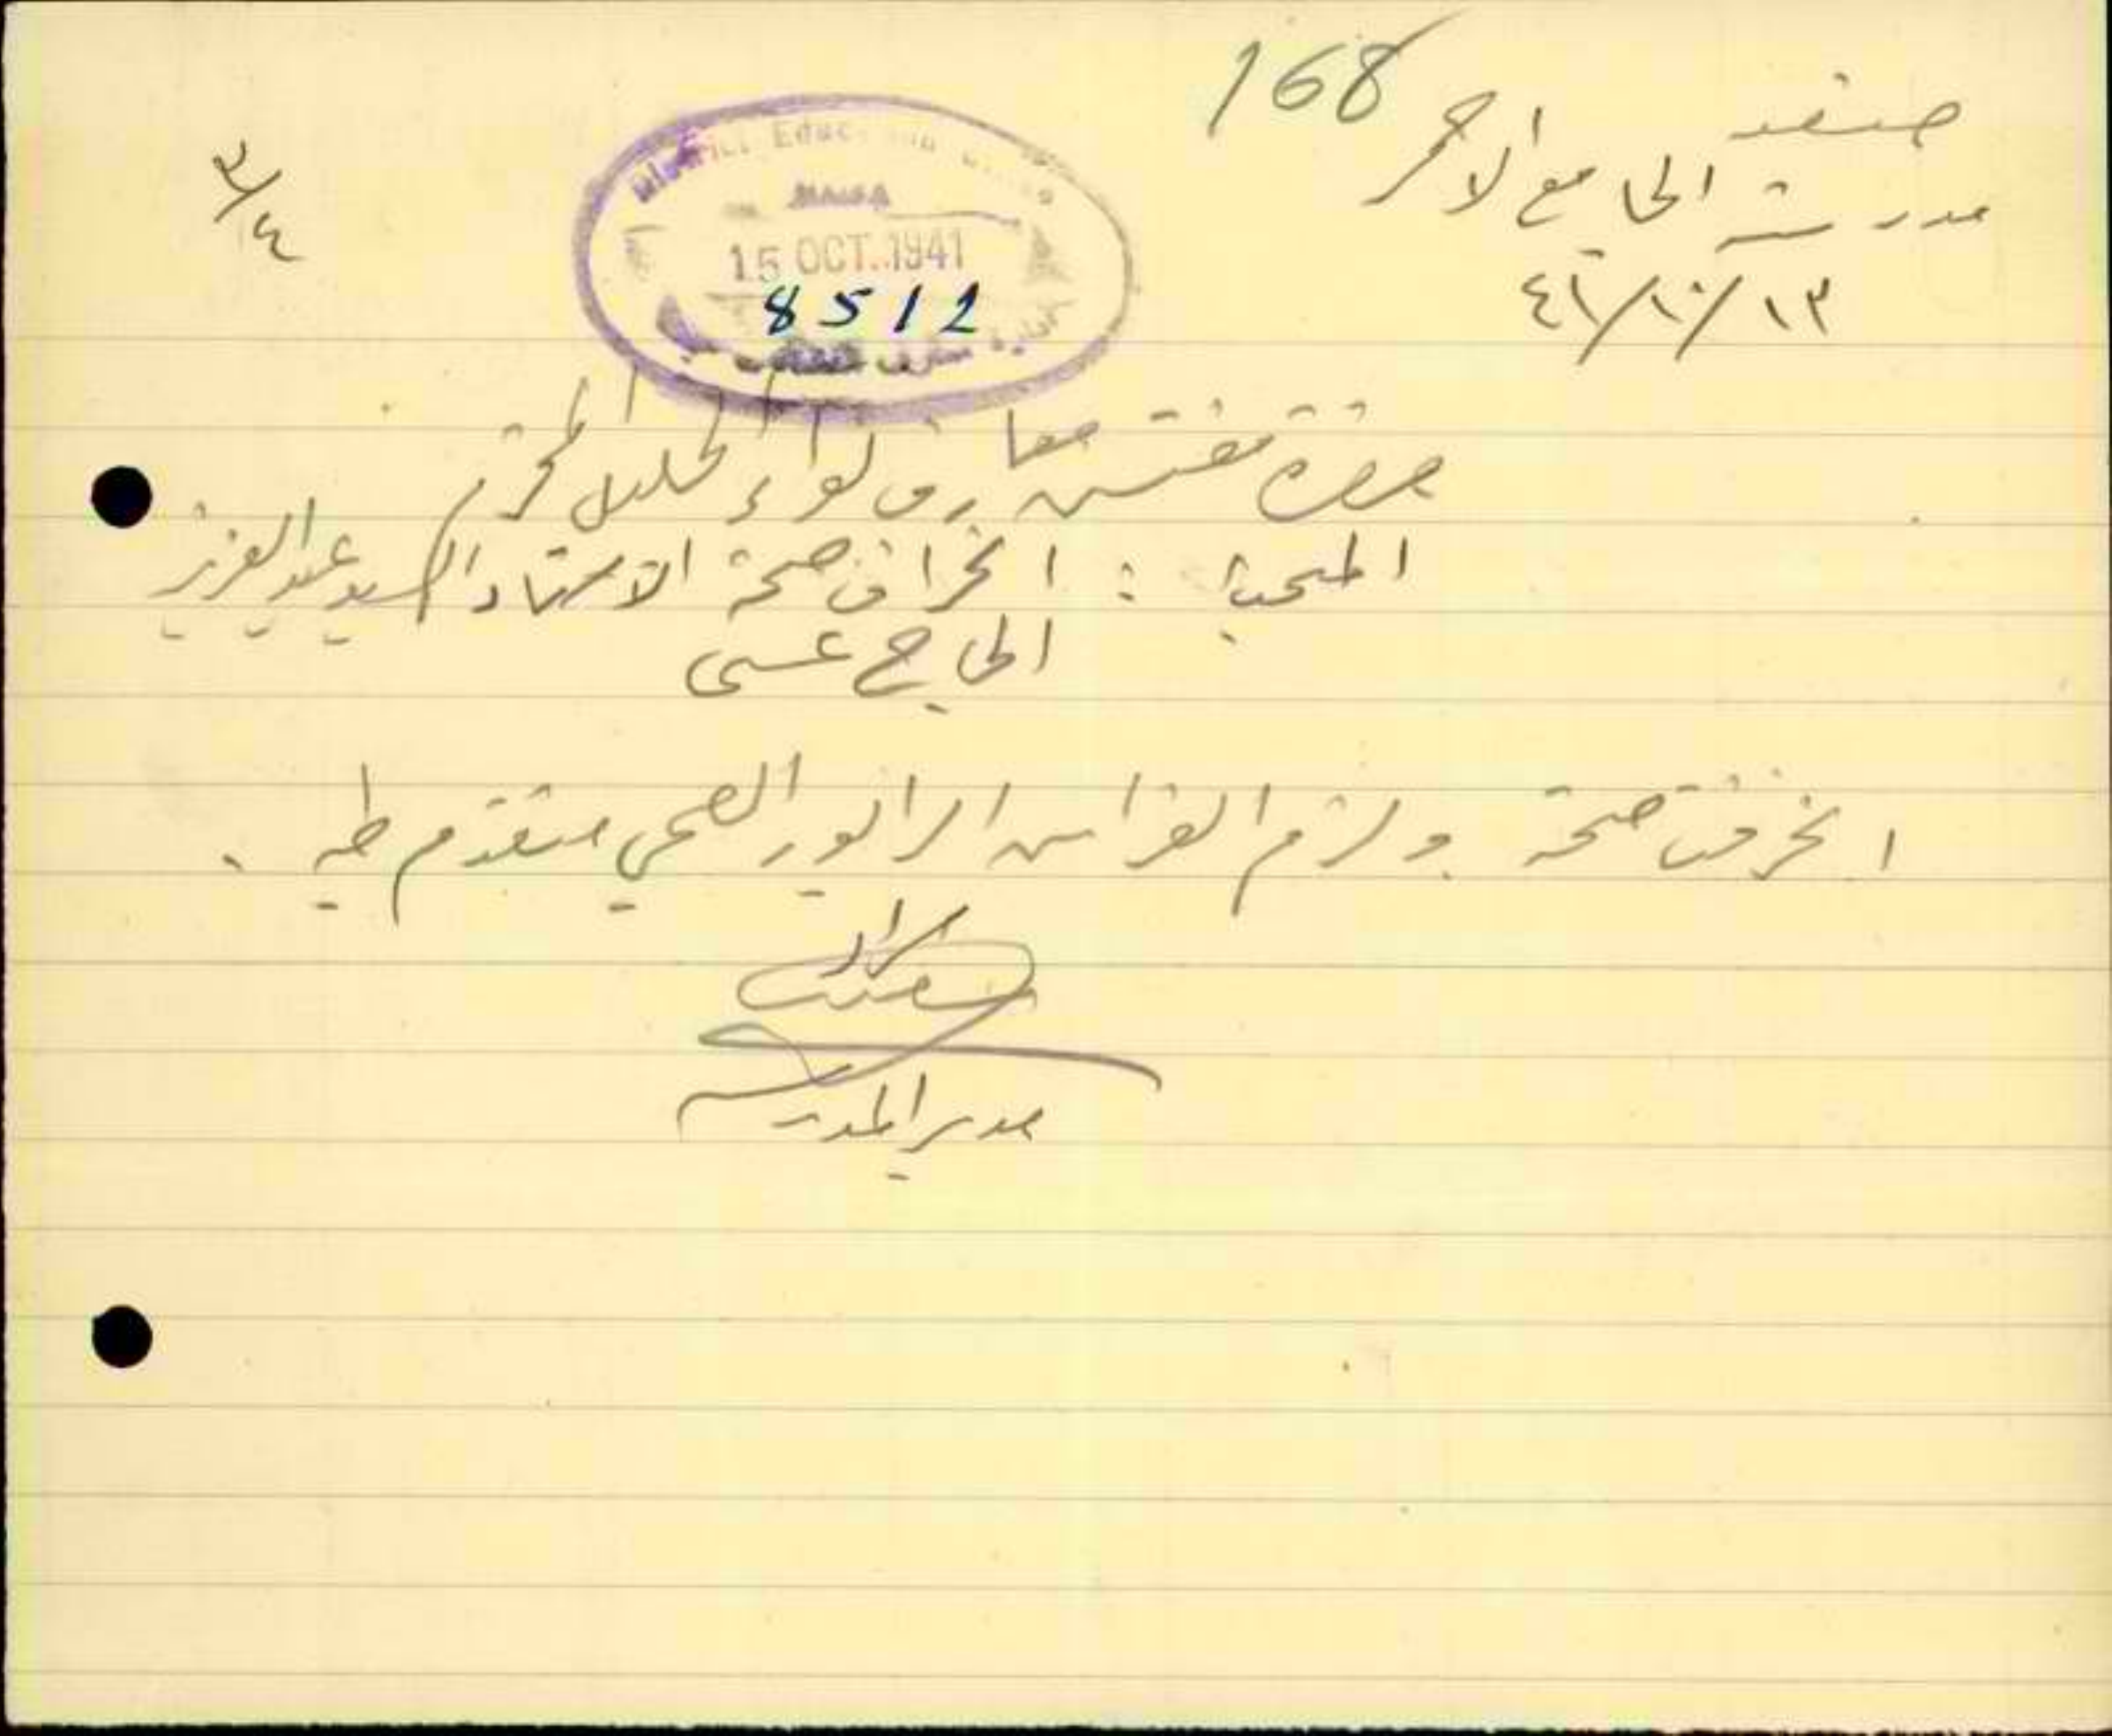 168
صفد
مدرسة الجامع الاحمر
١٣/١٠/٤١
٢/٤
District Education Office
HAIFA
15 OCT. 1941
8512
ادارة معارف
حضرة مفتش معارف لواء الجليل المحترم
المبحث : انحراف صحة الاستاذ السيد عبد العزيز
الحاج عيسى
انحرفت صحة ولزم الفراش الرابور الصحي متقدم طيه .
مدير المدرسة